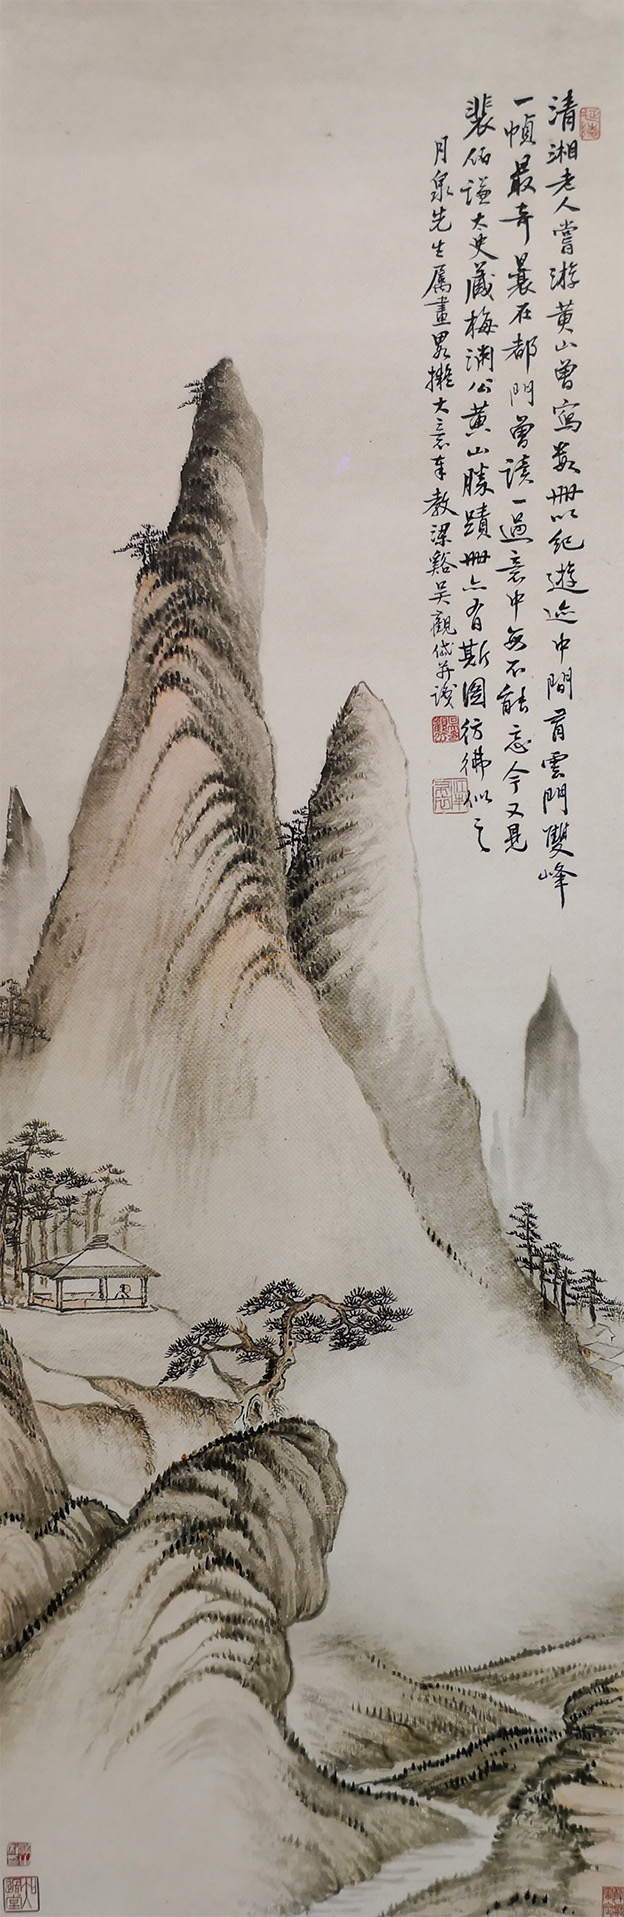 清湘老人嘗游黃山曾寫數冊以紀遊迹中間有雲門雙峰
一幀最奇曩在都門曾讀一過意中每不能忘今又見
裴伯謙太史藏梅淵公黃山勝蹟冊亦有斯圖彷彿似之
月泉先生屬畫略擬大意奉教梁谿吳觀岱并識